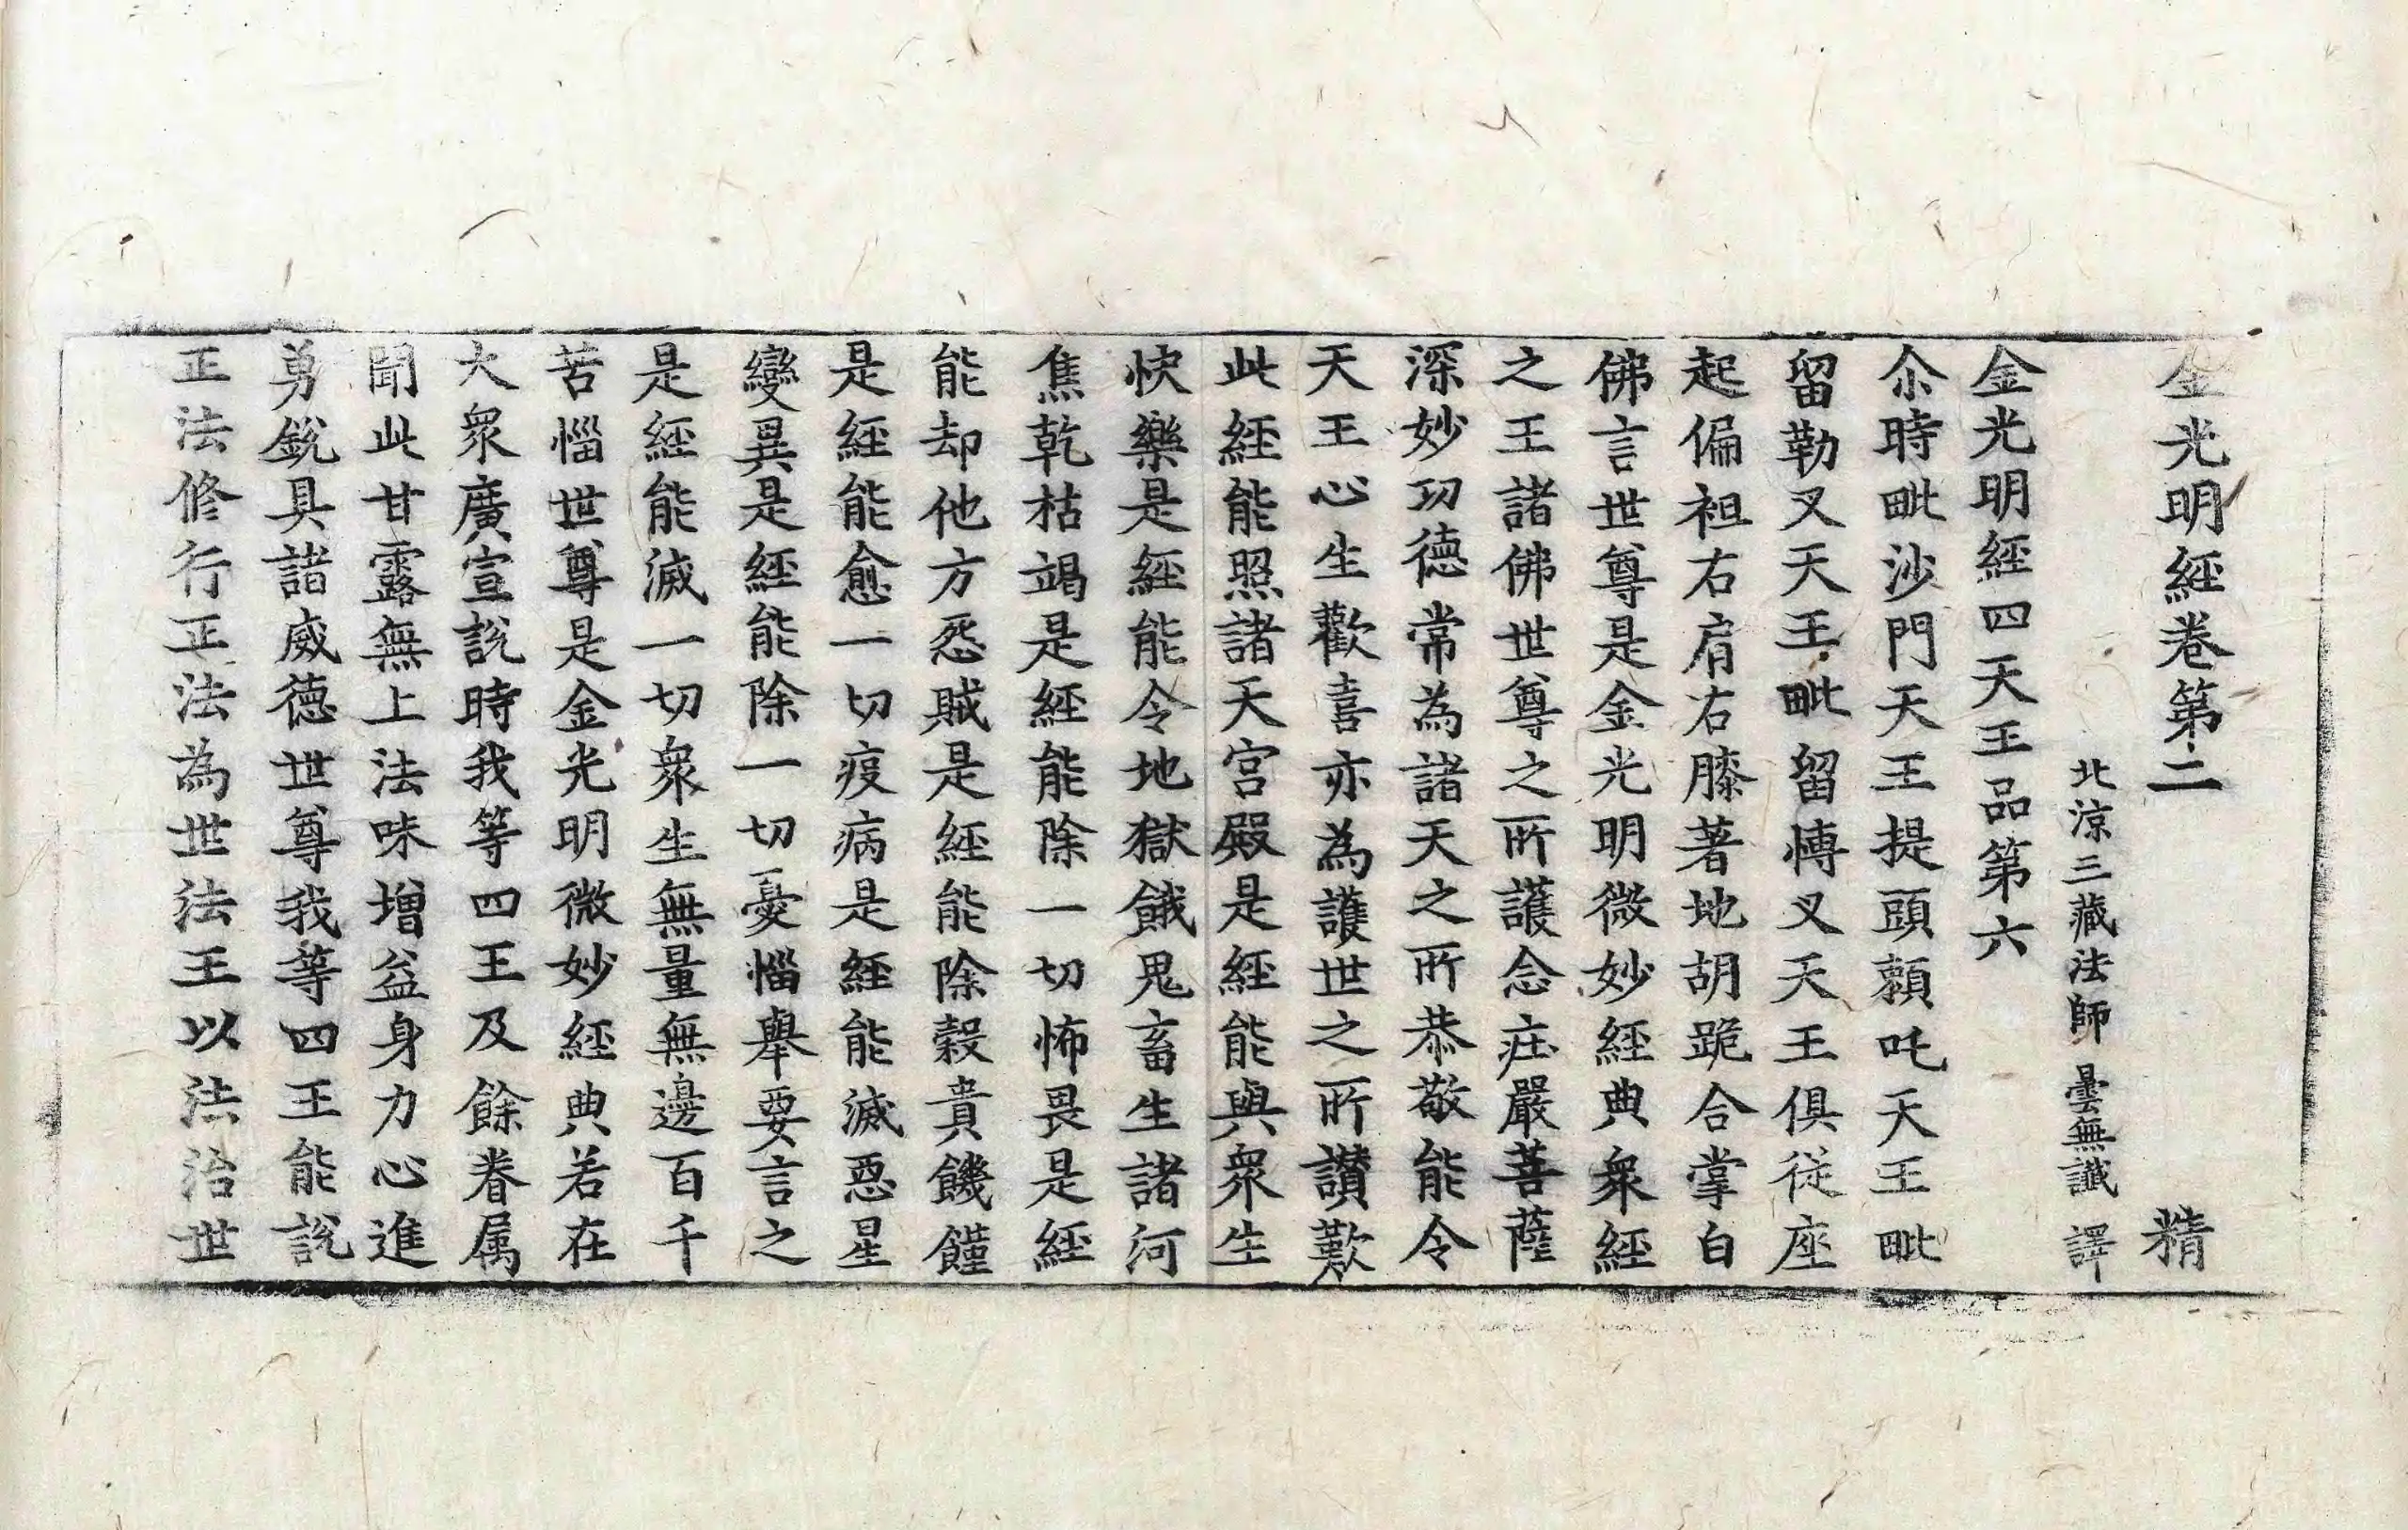 金光明經卷第二 精
北涼三藏法師 曇無讖 譯
金光明經四天王品第六
尒時毗沙門天王提頭頼吒天王毗
留勒叉天王毗留博叉天王俱従座
起偏袒右肩右膝著地胡跪合掌白
佛言世尊是金光明微妙經典衆經
之王諸佛世尊之所護念疘嚴菩薩
深妙功德常為諸天之所恭敬能令
天王心生歡喜亦為護世之所讃歎
此經能照諸天宮殿是經能與衆生
快樂是經能令地獄餓鬼畜生諸河
焦乾枯竭是經能除一切怖畏是經
能却他方怨賊是經能除穀貴饑饉
是經能愈一切疫病是經能滅惡星
變異是經能除一切憂惱舉要言之
是經能滅一切衆生無量無邊百千
苦惱世尊是金光明微妙經典若在
大衆廣宣說時我等四王及餘眷属
聞此甘露無上法味增益身力心進
勇銳具諸威德世尊我等四王能說
正法修行正法為世法王以法治世